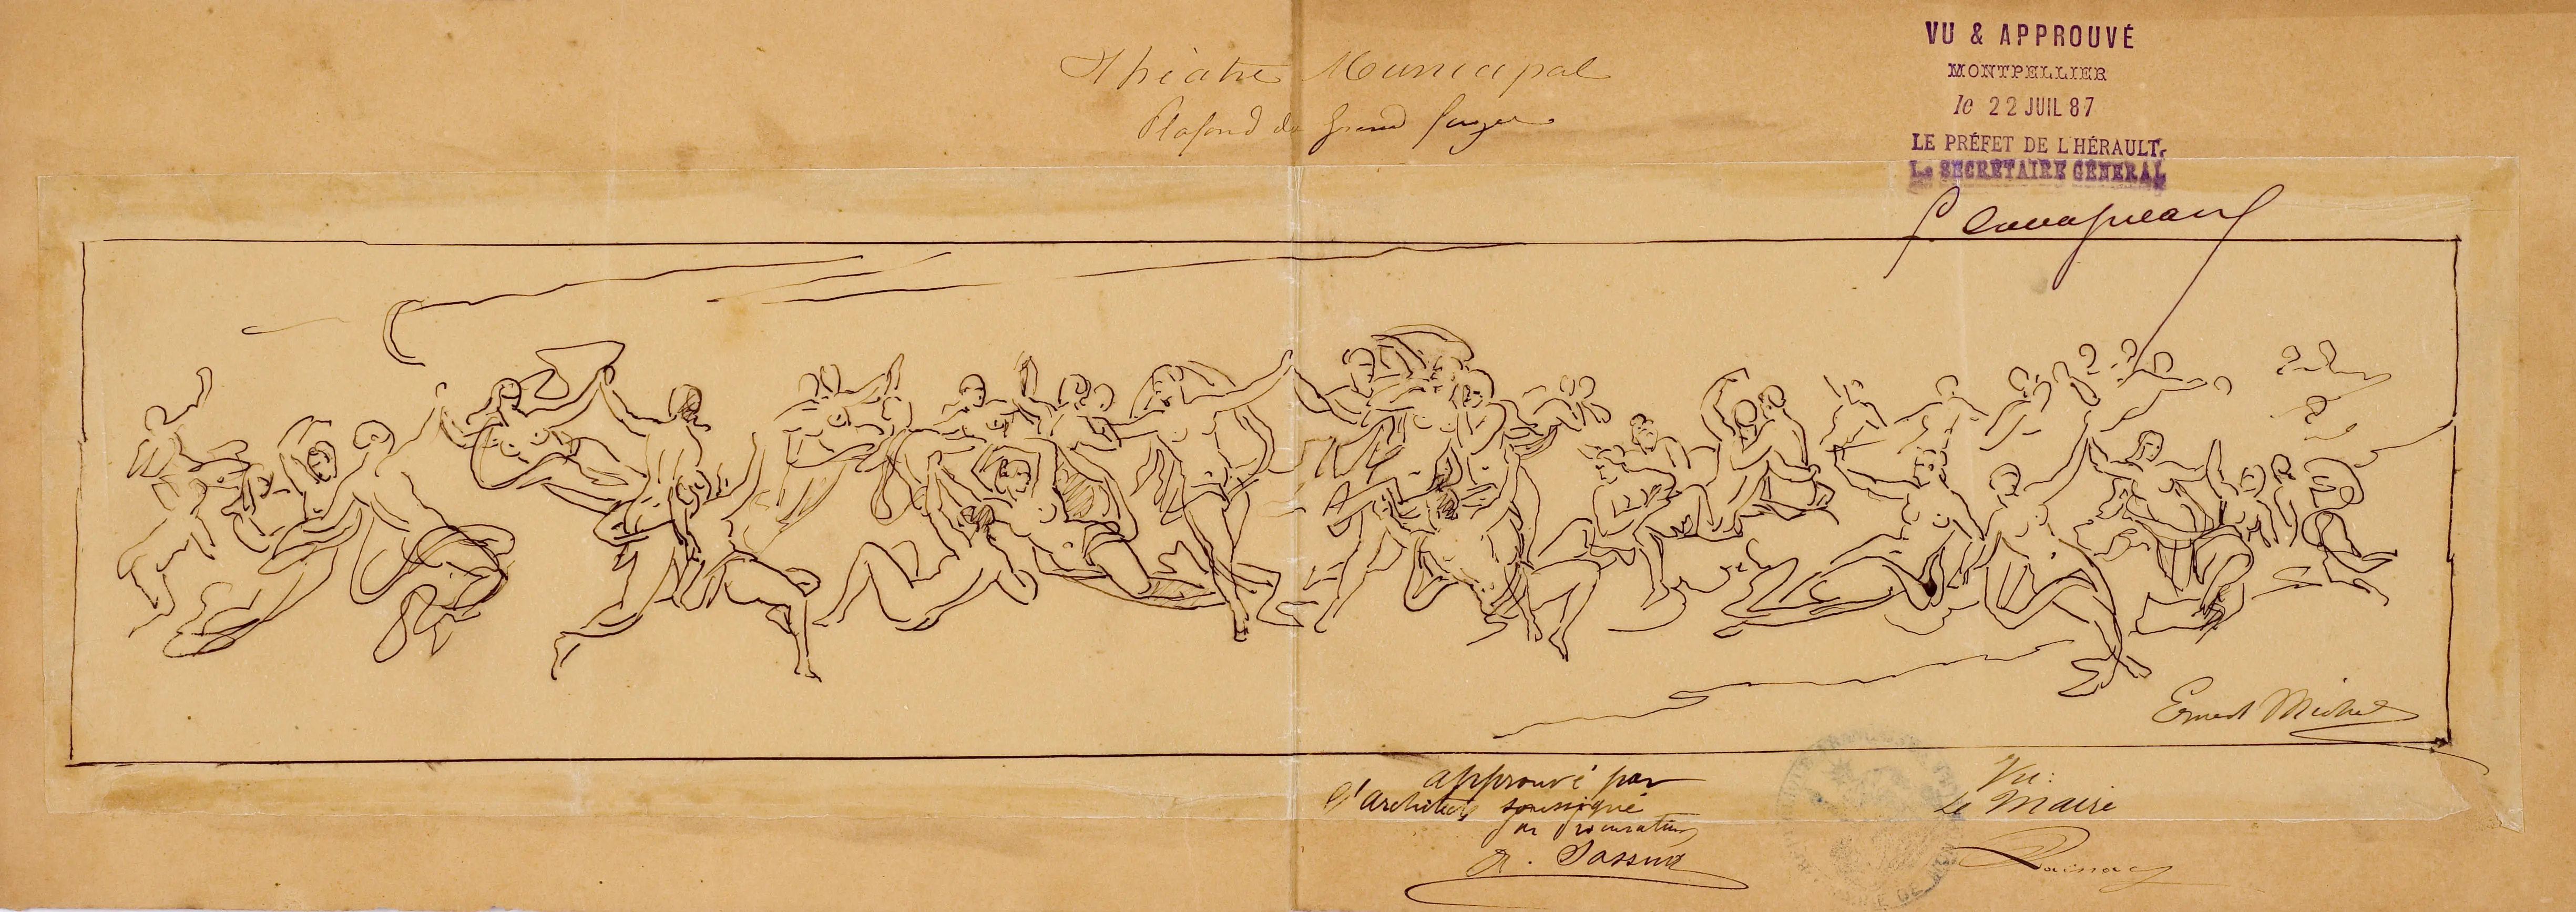 Théâtre Municipal
Plafond du Grand foyer
VU & APPROUVÉ
MONTPELLIER
le 22 JUIL 87
LE PRÉFET DE L'HÉRAULT,
Le SECRÉTAIRE GÉNÉRAL
Ernest Michel
approuvé par
l'architecte soussigné
par procuration
Vu:
Le Maire